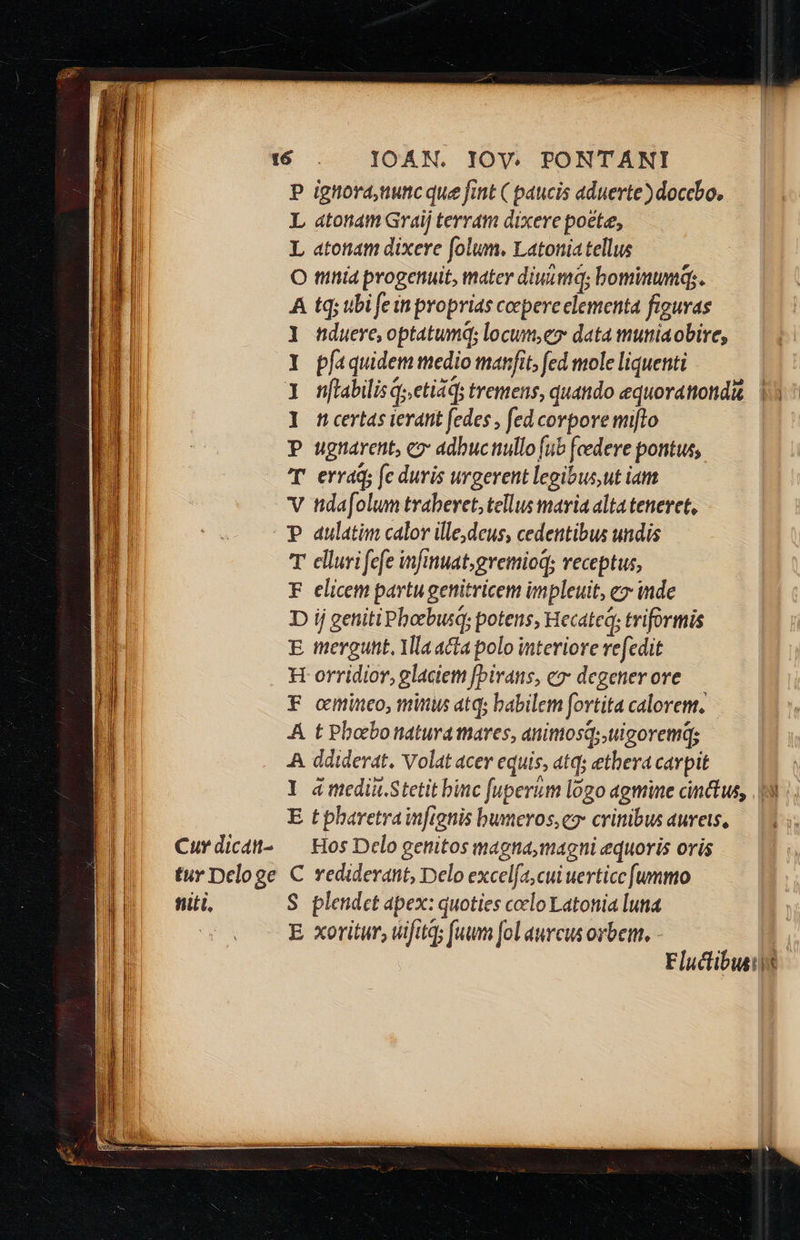 16 IOAN. IOV. PONTANI
P ignora,nunc que sint ( paucis aduerte) docebo.
L atonam Graij terram dixere poëtæ,
L atonam dixere solum. Latonia tellus
O mnia progenuit, mater diuûmq; hominumq;.
A tq; ubi se in proprias cœpere elementa figuras
I nduere, optatumq; locum,et data munia obire,
I psa quidem medio mansit, sed mole liquenti
I nstabilis q;,etiãq; tremens, quando æquora nondũ
I n certas ierant sedes, sed corpore misto
P ugnarent, et adhuc nullo sub fœdere pontus,
T erraq; se duris urgerent legibus,ut iam
V nda solum traheret, tellus maria alta teneret.
P aulatim calor ille,deus, cedentibus undis
T elluri sese insinuat,gremioq; receptus,
F elicem partu genitricem impleuit, et inde
D ij geniti Phœbusq; potens, Hecateq; triformis
E mergunt. Illa acta polo interiore resedit
H orridior, glaciem spirans, et degener ore
F œmineo, minus atq; habilem sortita calorem.
A t Phœbo natura mares, animosq;,uigoremq;
A ddiderat. Volat acer equis, atq; æthera carpit
I à mediũ.Stetit hinc superûm lõgo agmine cinctus,
E t pharetra insignis humeros,et crinibus aureis,
Cur dican- Hos Delo genitos magna,magni æquoris oris
tur Delo ge C rediderant, Delo excelsa,cui uertice summo
niti. S plendet apex: quoties cœlo Latonia luna
E xoritur, uisitq; suum sol aureus orbem.
Fluctibus